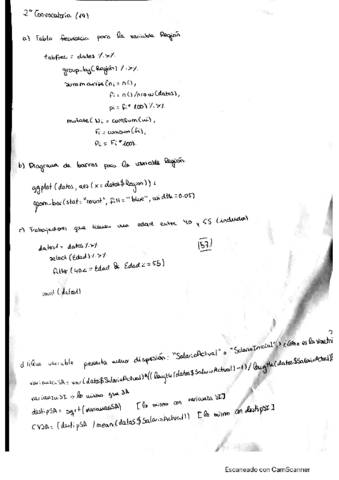 2ª Convocatoria (19)
a) Tabla frecuencia para la variable Región
tabfrec = datos %>%
group_by(Región) %>%
summarise(ni = n(),
fi = n()/nrow(datos),
pi = fi*100) %>%
mutate(Ni = cumsum(ni),
Fi = cumsum(fi),
Pi = Fi*100)
b) Diagrama de barras para la variable Región
ggplot(datos, aes(x = datos$Region)) +
geom_bar(stat="count", fill="blue", width=0.05)
c) Trabajadores que tienen una edad entre 40 y 55 (incluidos)
datos1 = datos %>%
select(Edad) %>%
filter(40<=Edad & Edad<=55)
d) ¿Qué variable presenta menor dispersión: "SalarioActual" o "SalarioInicial"?
varianzaSA = var(datos$SalarioActual)*((length(datos$SalarioActual)-1)/length(datos$SalarioActual))
varianzaSI = lo mismo que SA
destipSA = sqrt(varianzaSA) [lo mismo con varianza SI]
CVSA = (destipSA/mean(datos$SalarioActual)) [lo mismo con destipSI]
Escaneado con CamScanner